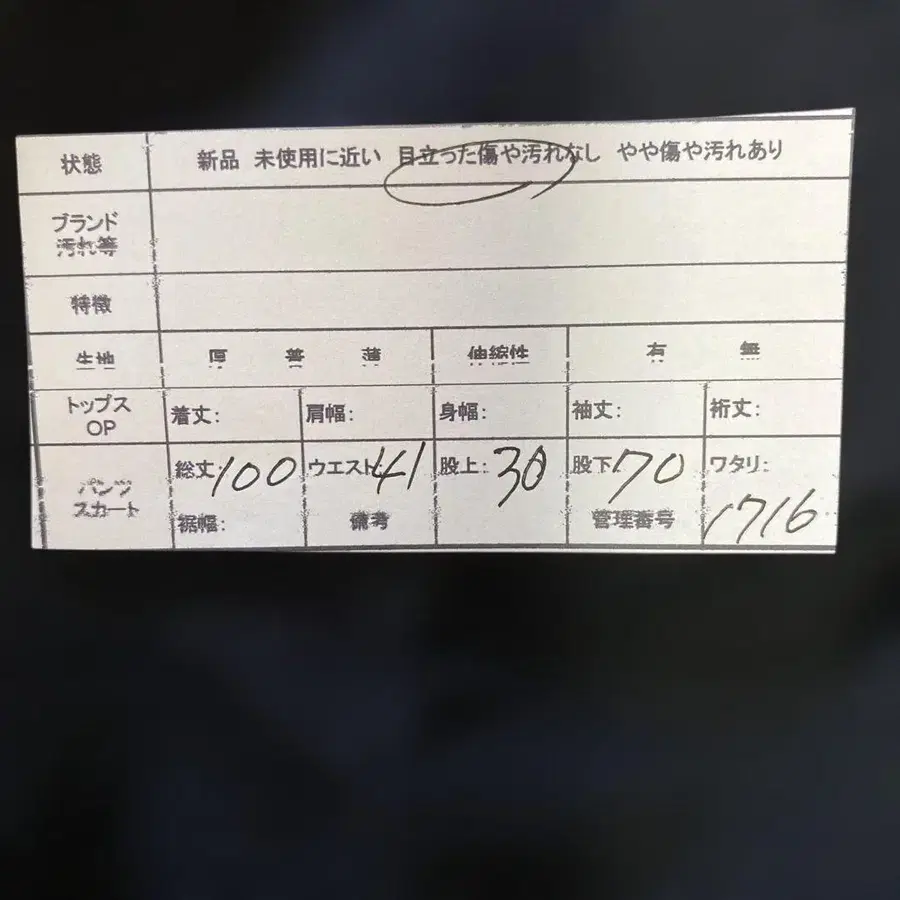 状態 新品 未使用に近い 目立った傷や汚れなし やや傷や汚れあり
ブランド
汚れ等
特徴
生地 厚 普 薄 伸縮性 有 無
トップス
OP
着丈: 肩幅: 身幅: 袖丈: 裄丈:
パンツ
スカート
総丈:100 ウエスト:41 股上:30 股下:70 ワタリ:
裾幅: 備考 管理番号 1716